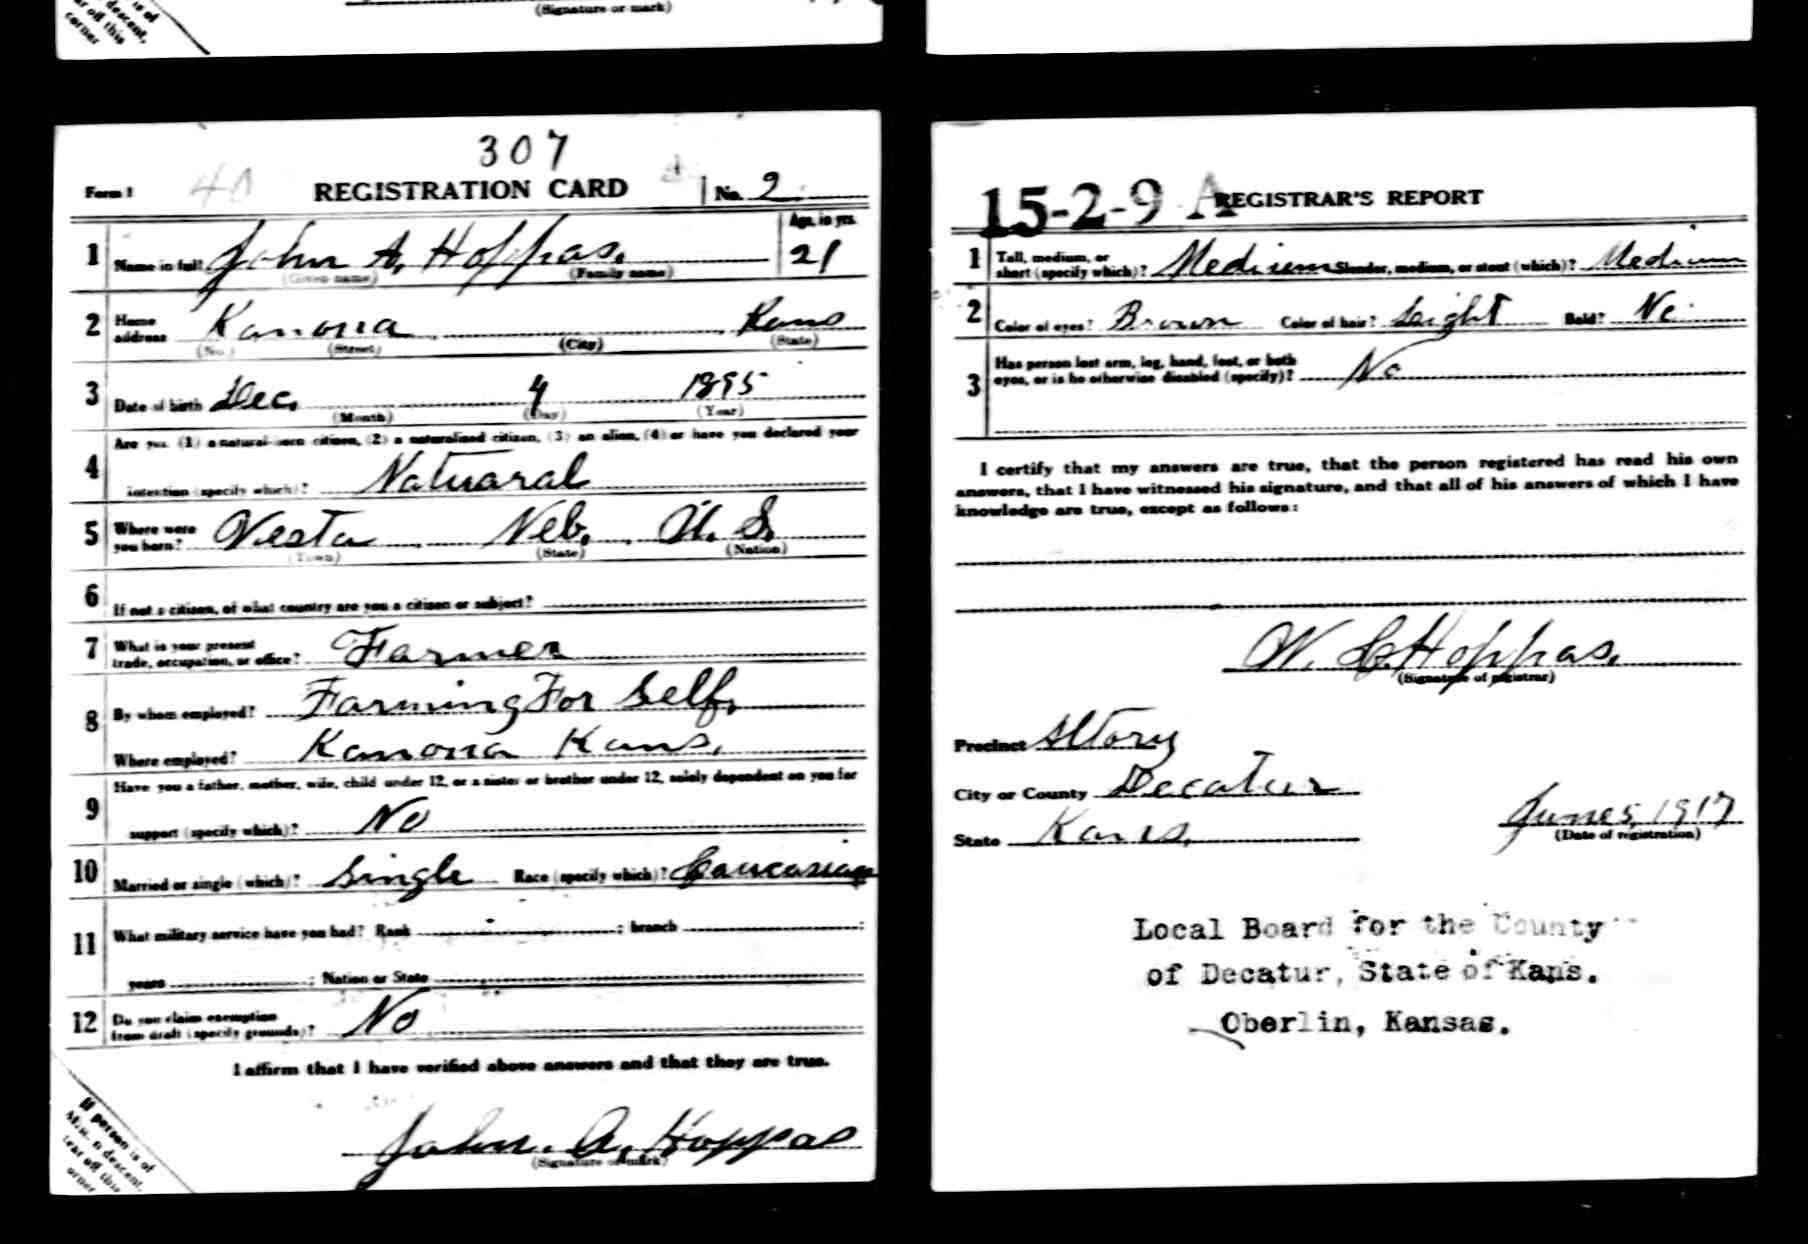 is of
descent,
ar off this
corner
(Signature or mark)
307
Form 1 40 REGISTRATION CARD No. 2
Age, in yrs.
1 Name in full John A. Hoppas. 21
(Given name) (Family name)
2 Home address Kanona Kans
(No.) (Street) (City) (State)
3 Date of birth Dec. 4 1895
(Month) (Day) (Year)
4 Are you (1) a natural-born citizen, (2) a naturalized citizen, (3) an alien, (4) or have you declared your
intention (specify which)? Natuaral
5 Where were you born? Vesta Neb. U. S.
(Town) (State) (Nation)
6 If not a citizen, of what country are you a citizen or subject?
7 What is your present
trade, occupation, or office? Farmer
8 By whom employed? Farming For Self.
Where employed? Kanona Kans.
9 Have you a father, mother, wife, child under 12, or a sister or brother under 12, solely dependent on you for
support (specify which)? No
10 Married or single (which)? Single Race (specify which)? Caucasian
11 What military service have you had? Rank ; branch ;
years ; Nation or State
12 Do you claim exemption
from draft (specify grounds)? No
I affirm that I have verified above answers and that they are true.
John. A. Hoppas
(Signature or mark)
If person is of
descent,
tear off this
corner
15-2-9 A REGISTRAR'S REPORT
1 Tall, medium, or
short (specify which)? Medium Slender, medium, or stout (which)? Medium
2 Color of eyes? Brown Color of hair? Light Bald? No
3 Has person lost arm, leg, hand, foot, or both
eyes, or is he otherwise disabled (specify)? No
I certify that my answers are true, that the person registered has read his own
answers, that I have witnessed his signature, and that all of his answers of which I have
knowledge are true, except as follows:
W. C. Hoppas.
(Signature of registrar)
Precinct Altory
City or County Decatur
State Kans. June 5, 1917
(Date of registration)
Local Board for the County
of Decatur, State of Kans.
Oberlin, Kansas.